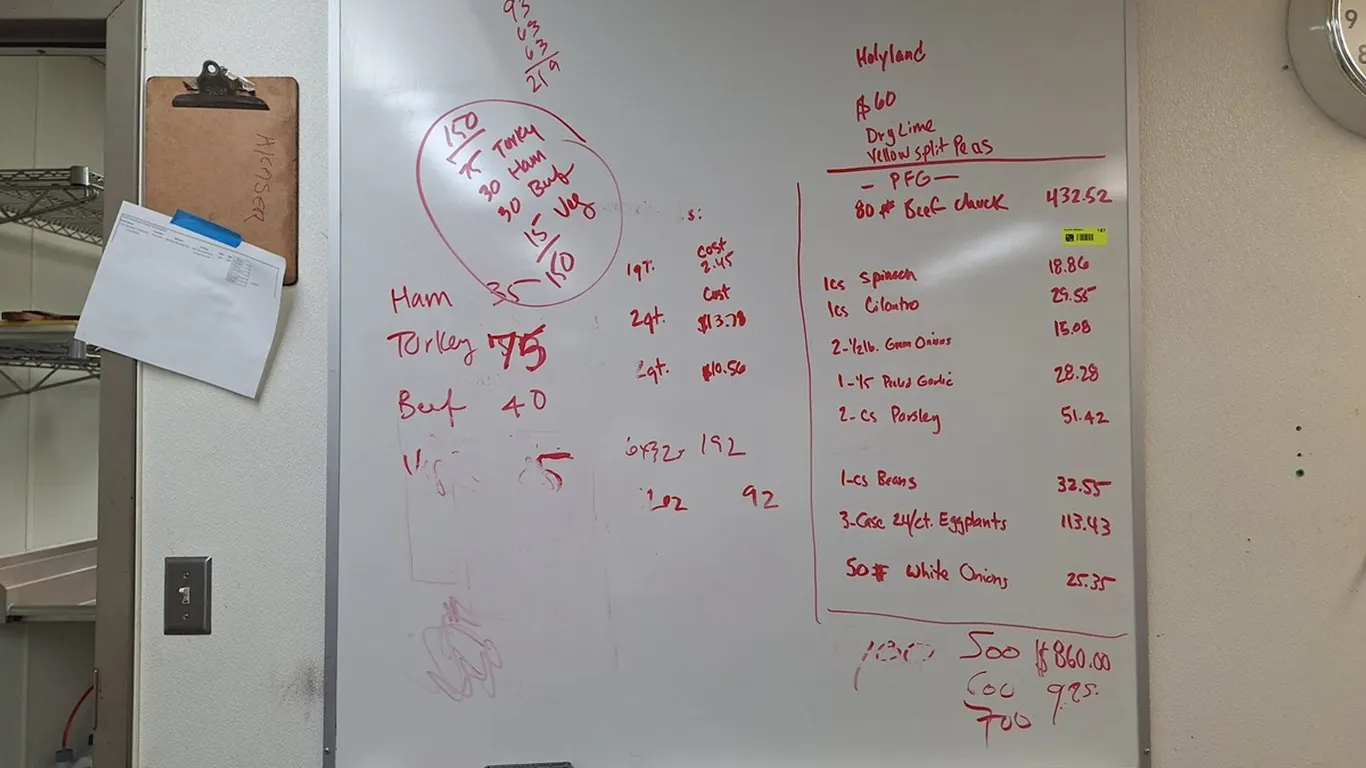 93
63
63
219
150
75 Torky
30 Ham
30 Beef
15 Veg
150
Ham 35
Torkey 75
Beef 40
5
s:
1qt. cost 2.45
cost
2qt. $13.78
2qt. $10.56
6x32 - 192
192 92
Holyland
$60
Dry Lime
Yellow split Peas
- PFG -
80# Beef chuck 432.52
1cs Spinach 18.86
1cs Cilantro 29.55
2-1/2lb. Green Onions 15.08
1-1/5 Peeld Garlic 28.28
2-cs Parsley 51.42
1-cs Beans 32.55
3-Case 24/ct. Eggplants 113.43
50# White Onions 25.35
100 500 $860.00
600 925.
700
9
8